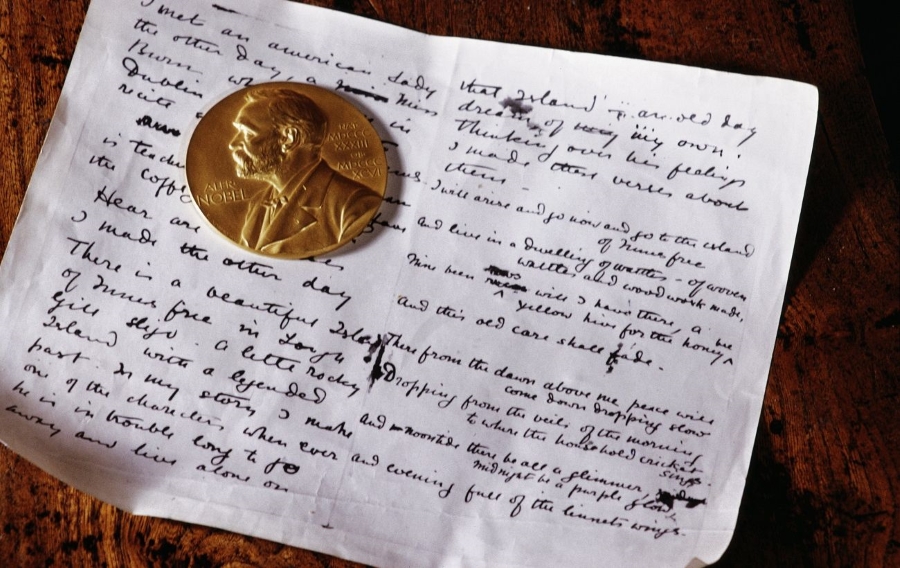 I met an american Lady
the other day, a Miss
Burn
Dublin in
recite
is teachi
the coffe
Hear are
I made the other day
There is a beautiful Island
of Innis free in Lough
Gill Sligo. A little rocky
Island with a legended
past. In my story I make
one of the charecters when ever
he is in trouble long to go
away and live alone on
that Island – an old day
dream of my own.
Thinking over his feelings
I made these verses about
them –
I will arise and go now and go to the island
of Innis free
and live in a dwelling of wattles – of woven
wattles and wood work made,
Nine been will I have there, a
yellow hive for the honey bee
And this old care shall fade.
There from the dawn above me peace will
come down dropping slow
Dropping from the veils of the morning
to where the household cricket
sings.
And noontide there be all a glimmer,
midnight be a purple glow
and evening full of the linnets wings.
ALFR·
NOBEL
NAT·
MDCCC
XXXIII
OB·
MDCCC
XCVI